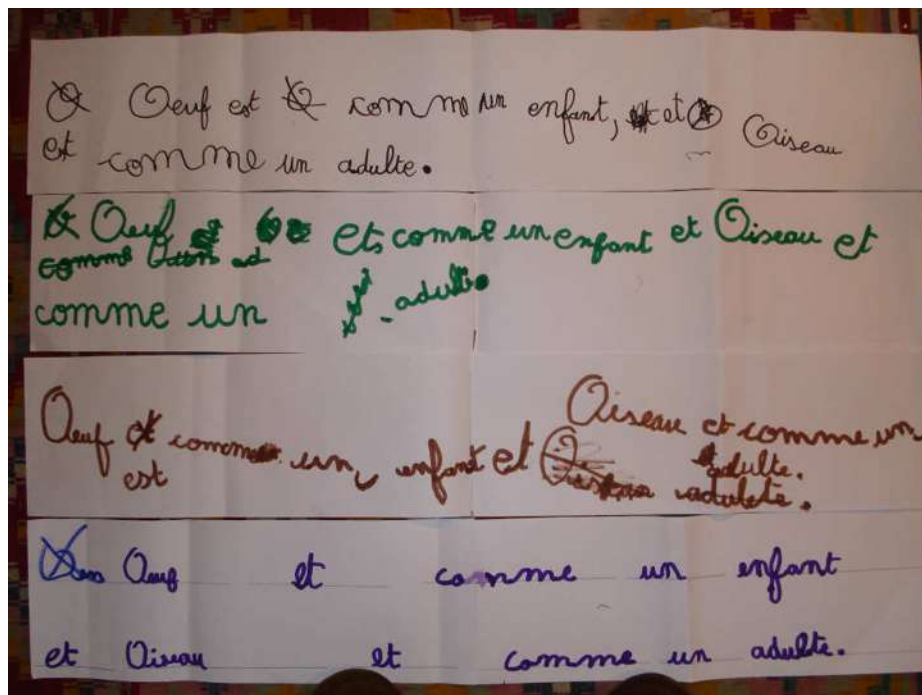 Oeuf est comme un enfant, et Oiseau
est comme un adulte.
Oeuf ets comme un enfant et Oiseau et
comme un ad
comme un adulte.
Oeuf comme un enfant et Oiseau et comme un
est adulte.
adulete.
Oeuf et comme un enfant
et Oiseau et comme un adulte.